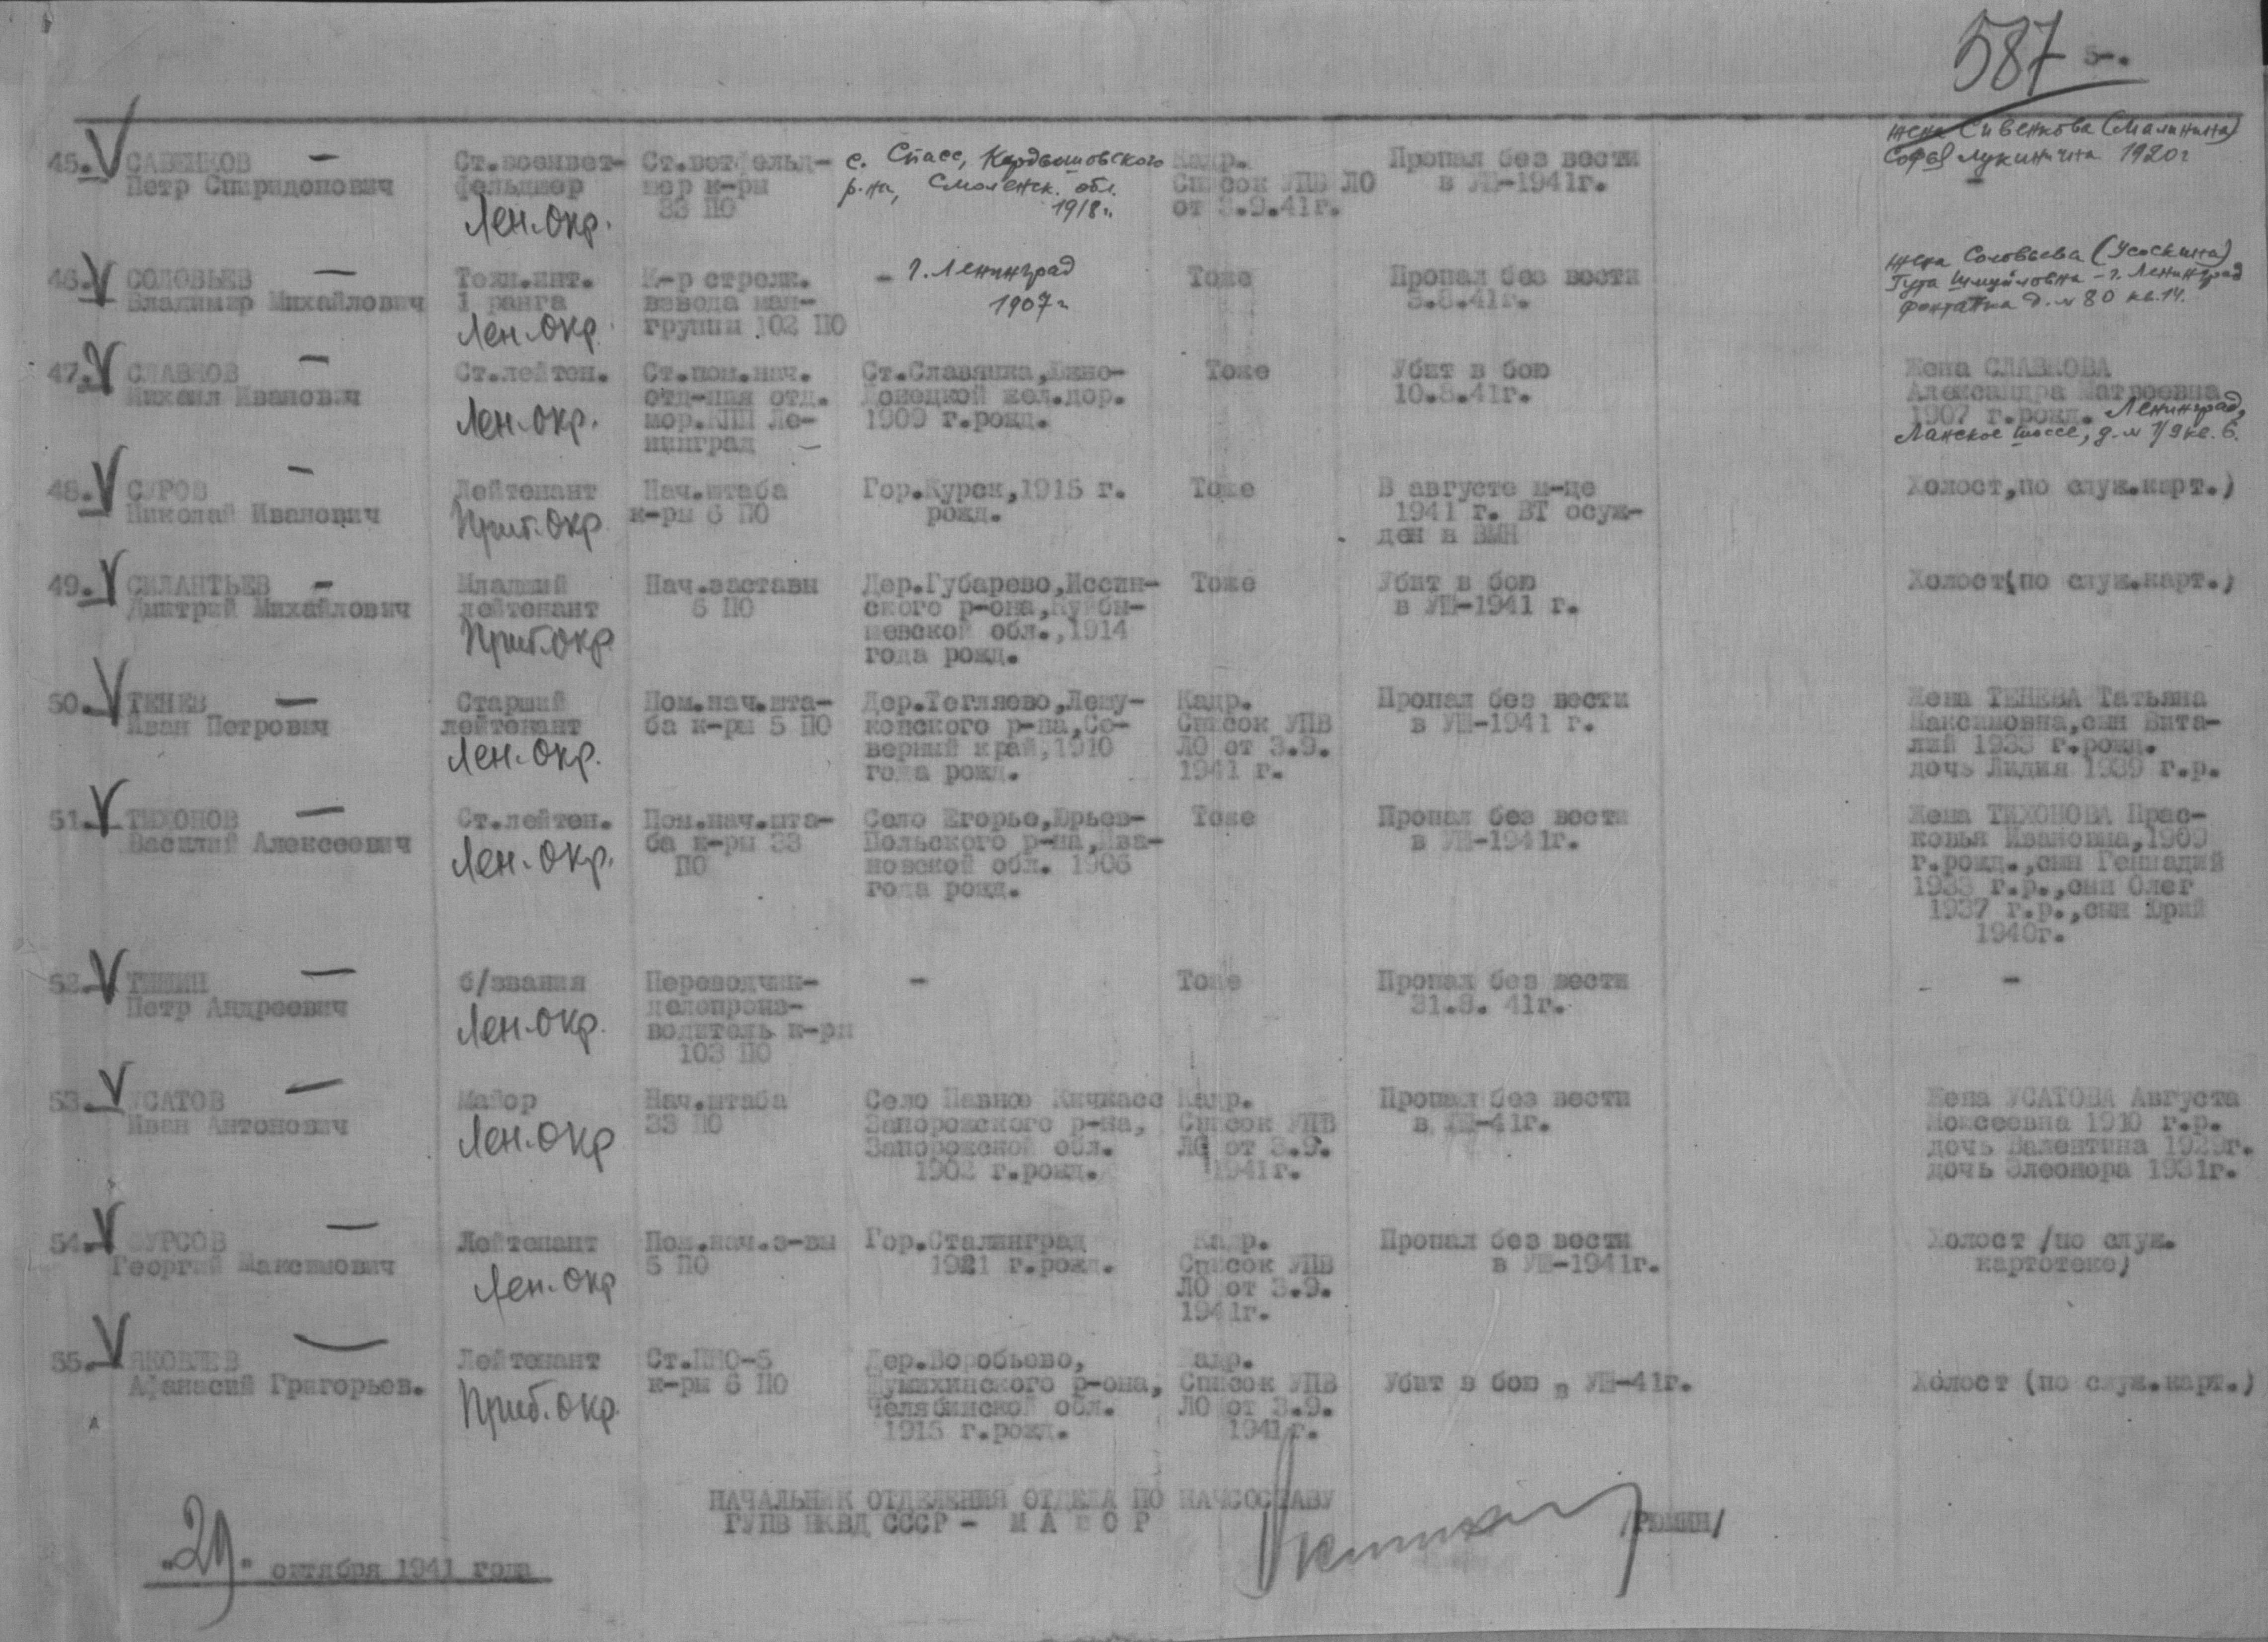 587
5-.
45. САВЕНКОВ
Петр Спиридонович
Ст.военвет-
фельдшер
Лен.окр.
Ст.ветфельд-
шер к-ры
33 ПО
с. Спасс, Кардымовского
р-на, Смоленск. обл.
1918г.
Кадр.
Список УПВ ЛО
от 3.9.41г.
Пропал без вести
в УШ-1941г.
жена Сивенкова (Малинина)
Софья Лукинична 1920г
46. СОЛОВЬЕВ
Владимир Михайлович
Техн.инт.
1 ранга
Лен.окр.
К-р стрелк.
взвода ман-
группы 102 ПО
- г. Ленинград
1907г
Тоже
Пропал без вести
3.8.41г.
жена Соловьева (Усоскина)
Шмуйловна - г. Ленинград
Фонтанка д. № 80 кв. 14.
47. СЛАВНОВ
Михаил Иванович
Ст.лейтен.
Лен.окр.
Ст.пом.нач.
отд-ния отд.
мор.КПП Ле-
нинград -
Ст.Славянка, Южно-
Донецкой жел.дор.
1909 г.рожд.
Тоже
Убит в бою
10.8.41г.
Жена СЛАВНОВА
Александра Матвеевна
1907 г.рожд. Ленинград,
Ланское шоссе, д. № 1/9 кв. 6.
48. СУРОВ
Николай Иванович
Лейтенант
Приб.окр
Нач.штаба
к-ры 6 ПО
Гор.Курск,1915 г.
рожд.
Тоже
В августе м-це
1941 г. ВТ осуж-
ден в ВМН
Холост,по служ.карт.)
49. СИЛАНТЬЕВ
Дмитрий Михайлович
Младший
лейтенант
Приб.окр
Нач.заставы
6 ПО
Дер.Губарево,Иссин-
ского р-она,Куйбы-
шевской обл.,1914
года рожд.
Тоже
Убит в бою
в УШ-1941 г.
Холост(по служ.карт.)
50. ТЕНЕВ
Иван Петрович
Старший
лейтенант
Лен.окр.
Пом.нач.шта-
ба к-ры 5 ПО
Дер.Тегляево,Лешу-
конского р-на,Се-
верный край,1910
года рожд.
Кадр.
Список УПВ
ЛО от 3.9.
1941 г.
Пропал без вести
в УШ-1941 г.
Жена ТЕНЕВА Татьяна
Максимовна,сын Вита-
лий 1933 г.рожд.
дочь Лидия 1939 г.р.
51. ТИХОНОВ
Василий Алексеевич
Ст.лейтен.
Лен.окр.
Пом.нач.шта-
ба к-ры 33
ПО
Село Егорье,Юрьев-
Польского р-на,Ива-
новской обл. 1906
года рожд.
Тоже
Пропал без вести
в УШ-1941г.
Жена ТИХОНОВА Прас-
ковья Ивановна,1909
г.рожд.,сын Геннадий
1933 г.р.,сын Олег
1937 г.р.,сын Юрий
1940г.
52. ТИШИН
Петр Андреевич
б/звания
Лен.окр.
Переводчик-
делопроиз-
водитель к-ры
103 ПО
-
Тоже
Пропал без вести
31.8. 41г.
-
53. УСАТОВ
Иван Антонович
Майор
Лен.окр
Нач.штаба
33 ПО
Село Павное Кичкасс
Запорожского р-на,
Запорожской обл.
1902 г.рожд.
Кадр.
Список УПВ
ЛО от 3.9.
1941г.
Пропал без вести
в УШ-41г.
Жена УСАТОВА Августа
Моисеевна 1910 г.р.
дочь Валентина 1929г.
дочь Элеонора 1931г.
54. ФУРСОВ
Георгий Максимович
Лейтенант
Лен.окр
Пом.нач.з-вы
5 ПО
Гор.Сталинград
1921 г.рожд.
Кадр.
Список УПВ
ЛО от 3.9.
1941г.
Пропал без вести
в УШ-1941г.
Холост /по служ.
картотеке)
55. ЯКОВЛЕВ
Афанасий Григорьев.
Лейтенант
Приб.окр.
Ст.ПНО-5
к-ры 6 ПО
Дер.Воробьево,
Шумихинского р-она,
Челябинской обл.
1915 г.рожд.
Кадр.
Список УПВ
ЛО от 3.9.
1941г.
Убит в бою в УШ-41г.
Холост (по служ.карт.)
НАЧАЛЬНИК ОТДЕЛЕНИЯ ОТДЕЛА ПО НАЧСОСТАВУ
ГУПВ НКВД СССР - МАЙОР
/РЮМИН/
"29" октября 1941 года